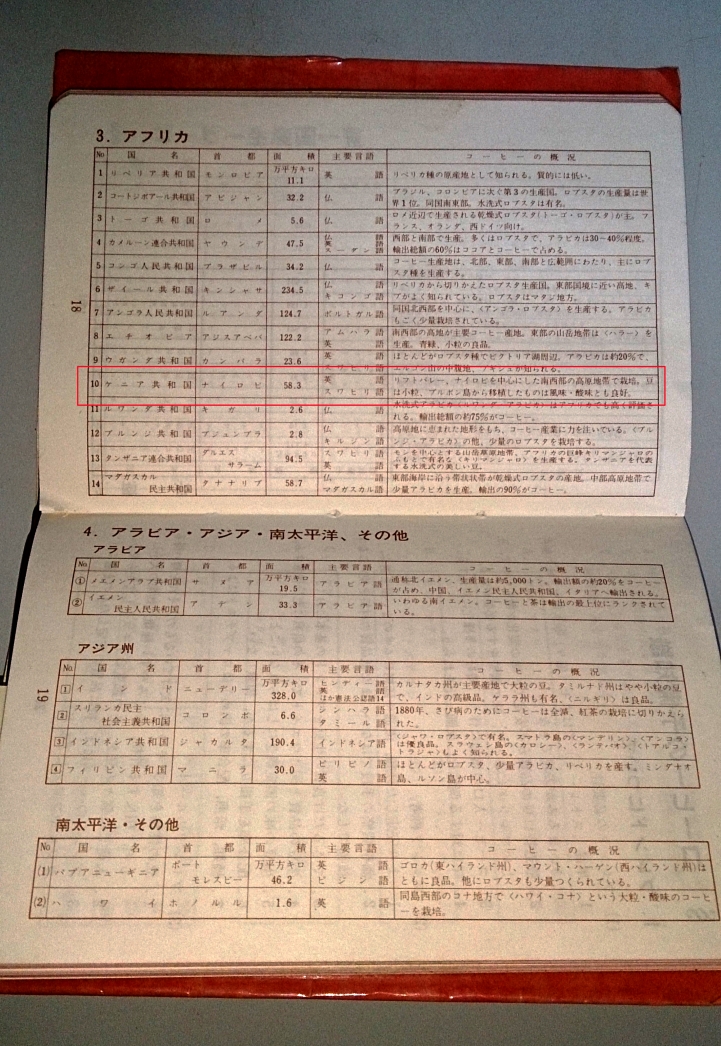 3. アフリカ
No 国名 首都 面積 主要言語 コーヒーの概況
1 リベリア共和国 モンロビア 万平方キロ 11.1 英語 リベリカ種の原産地として知られる。質的には低い。
2 コートジボアール共和国 アビジャン 32.2 仏語 ブラジル、コロンビアに次ぐ第3の生産国。ロブスタの生産量は世
界1位。同国南東部、水洗式ロブスタは有名。
3 トーゴ共和国 ロメ 5.6 仏語 ロメ近辺で生産される乾燥式ロブスタ(トーゴ・ロブスタ)が主。フ
ランス、オランダ、西ドイツ向け。
4 カメルーン連合共和国 ヤウンデ 47.5 仏語 英語 スーダン語 西部と南部で生産。多くはロブスタで、アラビカは30〜40%程度。
輸出総額の60%はココアとコーヒーで占める。
5 コンゴ人民共和国 ブラザビル 34.2 仏語 コーヒー生産地は、北部、東部、南部と広範囲にわたり、主にロブ
スタ種を生産する。
6 ザイール共和国 キンシャサ 234.5 仏語 キコンゴ語 リベリカから切りかえたロブスタ生産国。東部国境に近い高地、キ
ブがよく知られている。ロブスタはマタン地方。
7 アンゴラ人民共和国 ルアンダ 124.7 ポルトガル語 同国北西部を中心に、〈アンゴラ・ロブスタ〉を生産する。アラビカ
もごく少量栽培されている。
8 エチオピア アジスアベバ 122.2 アムハラ語 英語 南西部の高地が主要コーヒー産地。東部の山岳地帯は〈ハラー〉を
生産。青緑、小粒の良品。
9 ウガンダ共和国 カンパラ 23.6 英語 スワヒリ語 ほとんどがロブスタ種でビクトリア湖周辺。アラビカは約20%で、
エルゴン山の中腹地、ブギシュが知られる。
10 ケニア共和国 ナイロビ 58.3 英語 スワヒリ語 リフトバレー、ナイロビを中心にした南西部の高原地帯で栽培。豆
は小粒、ブルボン島から移植したものは風味・酸味とも良好。
11 ルワンダ共和国 キガリ 2.6 仏語 水洗式アラビカ〈ルワンダ・アラビカ〉はアメリカでも高く評価さ
れる。輸出総額の約75%がコーヒー。
12 ブルンジ共和国 ブジュンブラ 2.8 仏語 キルンジ語 高原地に恵まれた地形をもち、コーヒー産業に力を注いでいる。〈ブル
ンジ・アラビカ〉の他、少量のロブスタを栽培する。
13 タンザニア連合共和国 ダルエスサラーム 94.5 スワヒリ語 英語 モシを中心とする山岳草原地帯。アフリカの巨峰キリマンジャロの
ふもとで有名な〈キリマンジャロ〉を生産する。タンザニアを代表
する水洗式の美しい豆。
14 マダガスカル民主共和国 タナナリブ 58.7 仏語 マダガスカル語 東部海岸に沿う帯状状帯が乾燥式ロブスタの産地。中部高原地帯で
少量アラビカを生産。輸出の90%がコーヒー。
18
4. アラビア・アジア・南太平洋、その他
アラビア
No 国名 首都 面積 主要言語 コーヒーの概況
① イエメンアラブ共和国 サヌア 万平方キロ 19.5 アラビア語 通称北イエメン、生産量は約5,000トン。輸出額の約20%をコーヒー
が占め、中国、イエメン民主人民共和国、イタリアへ輸出される。
② イエメン民主人民共和国 アデン 33.3 アラビア語 いわゆる南イエメン。コーヒーと茶は輸出の最上位にランクされて
いる。
アジア州
No 国名 首都 面積 主要言語 コーヒーの概況
1 インド ニューデリー 万平方キロ 328.0 ヒンディー語 英語 ほか憲法公認語14 カルナタカ州が主要産地で大粒の豆。タミルナド州はやや小粒の豆
で、インドの高級品。ケララ州も有名、〈ニルギリ〉は良品。
2 スリランカ民主社会主義共和国 コロンボ 6.6 シンハラ語 タミール語 1880年、さび病のためにコーヒーは全滅。紅茶の栽培に切りかえら
れた。
3 インドネシア共和国 ジャカルタ 190.4 インドネシア語 〈ジャワ・ロブスタ〉で有名。スマトラ島の〈マンデリン〉、〈アンコラ〉
は優良品。スラウェシ島の〈カロシー〉、〈ランテパオ〉、〈トアルコ・
トラジャ〉もよく知られる。
4 フィリピン共和国 マニラ 30.0 ピリピノ語 英語 ほとんどがロブスタ、少量アラビカ、リベリカを産す。ミンダナオ
島、ルソン島が中心。
19
南太平洋・その他
No 国名 首都 面積 主要言語 コーヒーの概況
(1) パプアニューギニア ポートモレスビー 万平方キロ 46.2 英語 ピジン語 ゴロカ(東ハイランド州)、マウント・ハーゲン(西ハイランド州)は
ともに良品。他にロブスタも少量つくられている。
(2) ハワイ ホノルル 1.6 英語 同島西部のコナ地方で〈ハワイ・コナ〉という大粒・酸味のコーヒ
ーを栽培。